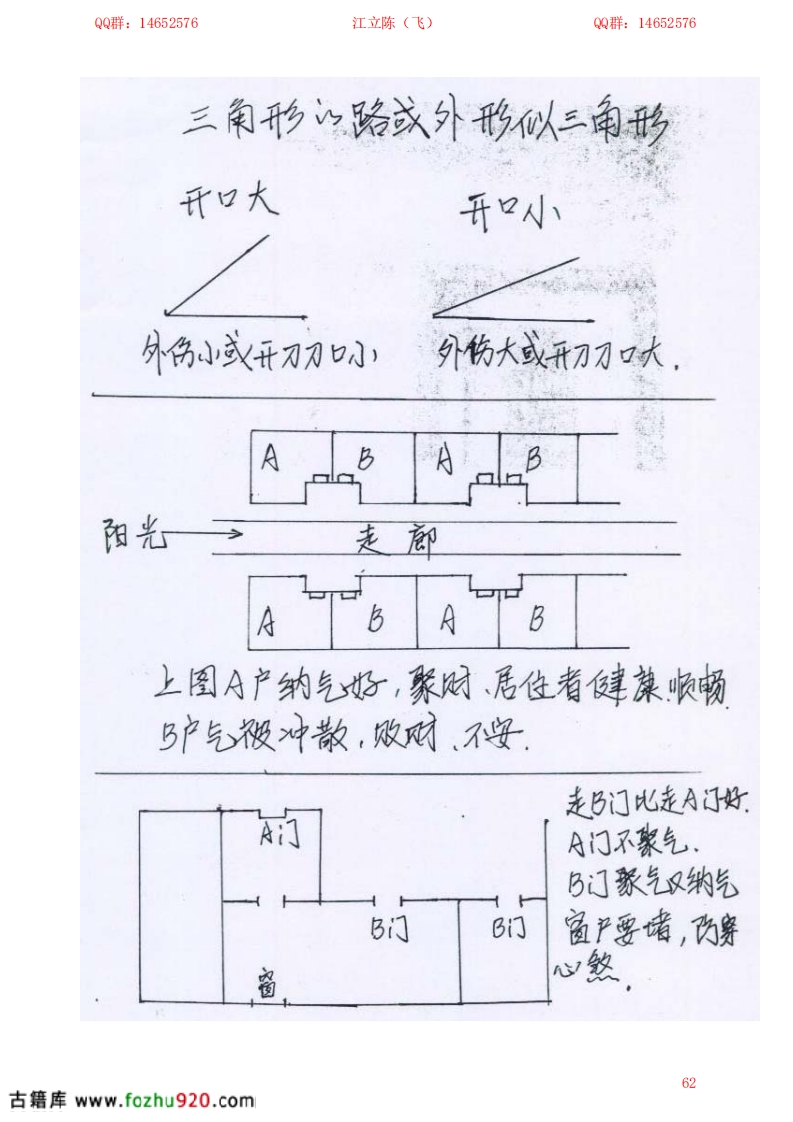 QQ群：14652576 江立陈（飞） QQ群：14652576
三角形的路或外形似三角形
开口大 开口小
外伤小或开刀刀口小 外伤大或开刀刀口大.
A B A B
阳光 走廊
A B A B
上图A户纳气好，聚财、居住者健康.顺畅.
B户气被冲散，败财、不安.
走B门比走A门好.
A门不聚气.
B门聚气又纳气
窗户要堵，防穿
心煞.
A门
B门 B门
窗
62
古籍库 www.fozhu920.com